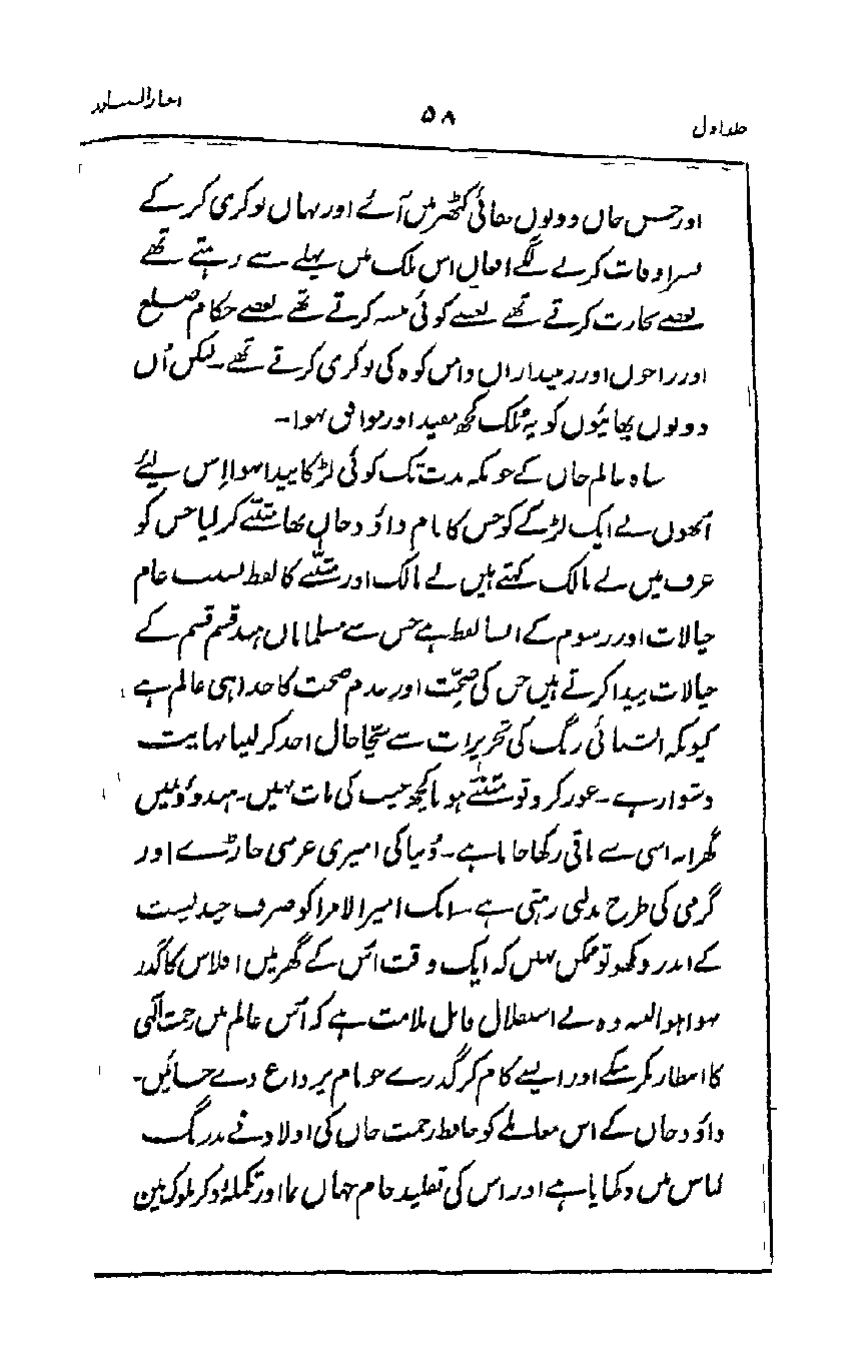 اخبار الصنادید
۵۸
جلد اول
اور حسن خاں دونوں بھائی کٹھیر میں آئے اور یہاں نوکری کر کے
بسر اوقات کرنے لگے افغان اس ملک میں پہلے سے رہتے تھے
بعضے تجارت کرتے تھے بعضے کوئی پیشہ کرتے تھے بعضے حکام ضلع
اور راجوں اور زمینداران دامن کوہ کی نوکری کرتے تھے۔ لیکن اُن
دونوں بھائیوں کو یہ مُلک کچھ مفید اور موافق نہوا۔
شاہ عالم خاں کے چونکہ مدت تک کوئی لڑکا پیدا نہوا اِس لیئے
اُنھوں نے ایک لڑکے کو جس کا نام داؤد خاں تھا متبنّے کر لیا جس کو
عرف میں لے پالک کہتے ہیں لے پالک اور متبنّے کا لفظ بسبب عام
خیالات اور رسوم کے ایسا لفظ ہے جس سے مسلمانان ہند قسم قسم کے
خیالات پیدا کرتے ہیں جن کی صحّت اور عدم صحت کا خدا ہی عالم ہے
کیونکہ انشائی رنگ کی تحریرات سے سچّا حال اخذ کر لینا نہایت
دشوار ہے۔ غور کرو تو متبنّے ہونا کچھ عیب کی بات نہیں۔ ہندوؤں میں
گھرانہ اسی سے باقی رکھا جاتا ہے۔ دُنیا کی امیری غریبی جاڑے اور
گرمی کی طرح بدلتی رہتی ہے۔ ایک امیر الامرا کو صرف چند پشت
کے اندر دیکھو تو ممکن نہیں کہ ایک وقت اُس کے گھر میں افلاس کا گذر
نہوا ہو البتہ وہ بے استقلال قابل ملامت ہے کہ اُس عالم میں رحمت الٰہی
کا انتظار نکر سکے اور ایسے کام کر گذرے جو نام پر داغ دے جائیں۔
داؤد خاں کے اس معاملے کو حافظ رحمت خاں کی اولاد نے بد رنگ
لباس میں دکھایا ہے اور اس کی تقلید جام جہاں نما اور تکملۂ ذکر ملوک میں